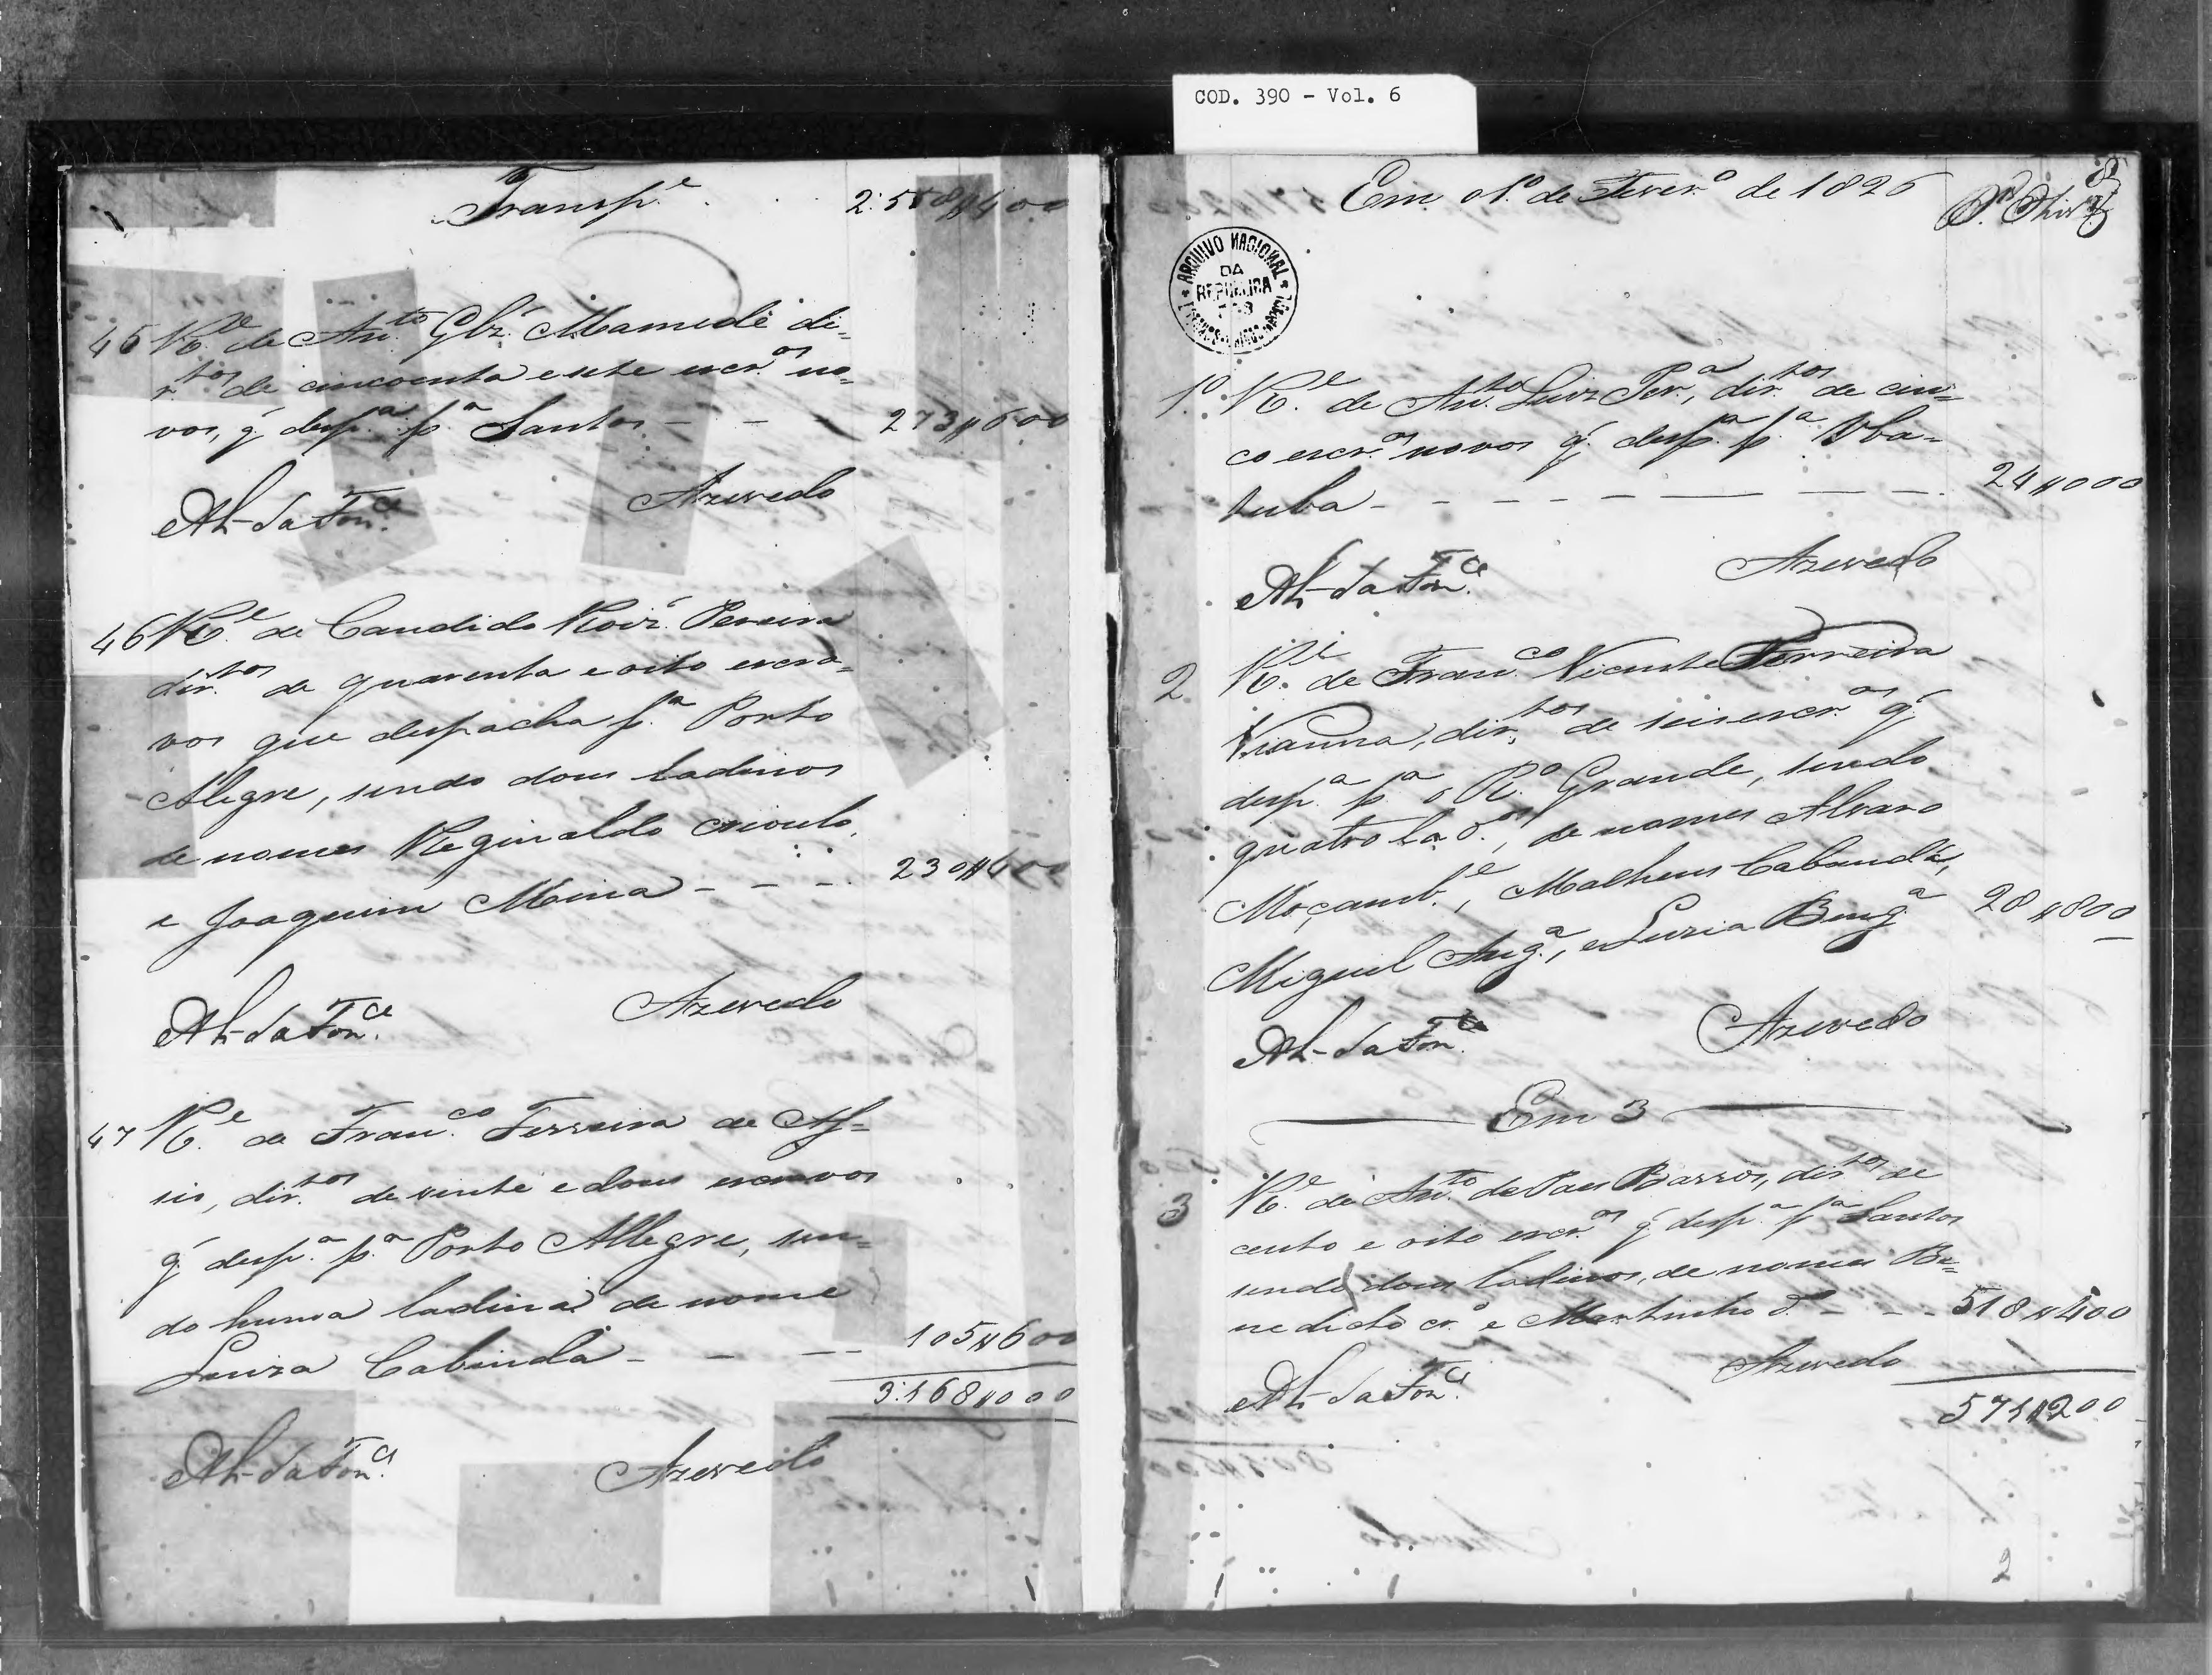 COD. 390 - Vol. 6
Transp.e 2:558$400
45 R.e de Ant.to Glz' Mamede di-
r.tos de cincoenta e sete escr.os no-
vos, q' desp.a p.a Santos - - - 273$600
Az.do da Fon.ca Azevedo
46 R.e de Candido Roiz' Pereira
dir.tos de quarenta e oito escra-
vos que despacha p.a Porto
Alegre, sendo dous ladinos
de nomes Reginaldo crioulo,
e Joaquim Mina - - - 230$400
da Fon.ca Azevedo
47 R.e de Fran.co Ferreira de As-
sis, dir.tos de vinte e dous escravos
q' desp.a p.a Porto Allegre, sen-
do huma ladina de nome
Luiza Cabinda - - - 105$600
3:168$000
da Fon.ca Azevedo
Em 1.o de Fever.o de 1826
ARQUIVO NACIONAL
DA
REPUBLICA
1.o R.e de Ant.to Luiz Per.a, dir.tos de cin-
co escr.os novos q' desp.a p.a Uba-
tuba - - - - - - - 24$000
da Fon.ca Azevedo
2 R.e de Fran.co Vicente Ferreira
Vianna, dir.tos de seis escr.os q'
desp.a p.a o R.o Grande, sendo
quatro lad.os, de nomes Alvaro
Moçamb.e, Matheus Cabundá,
Miguel Ang.a, e Luzia Beng.a 28$800
da Fon.ca Azevedo
Em 3
3 R.e de Ant.to de Paes Barros, dir.tos de
cento e oito escr.os q' desp.a p.a Santos
sendo dous ladinos, de nomes Be-
nedicto cr.o e Martinho d.o - - - 518$400
da Fon.ca Azevedo
571$200
2